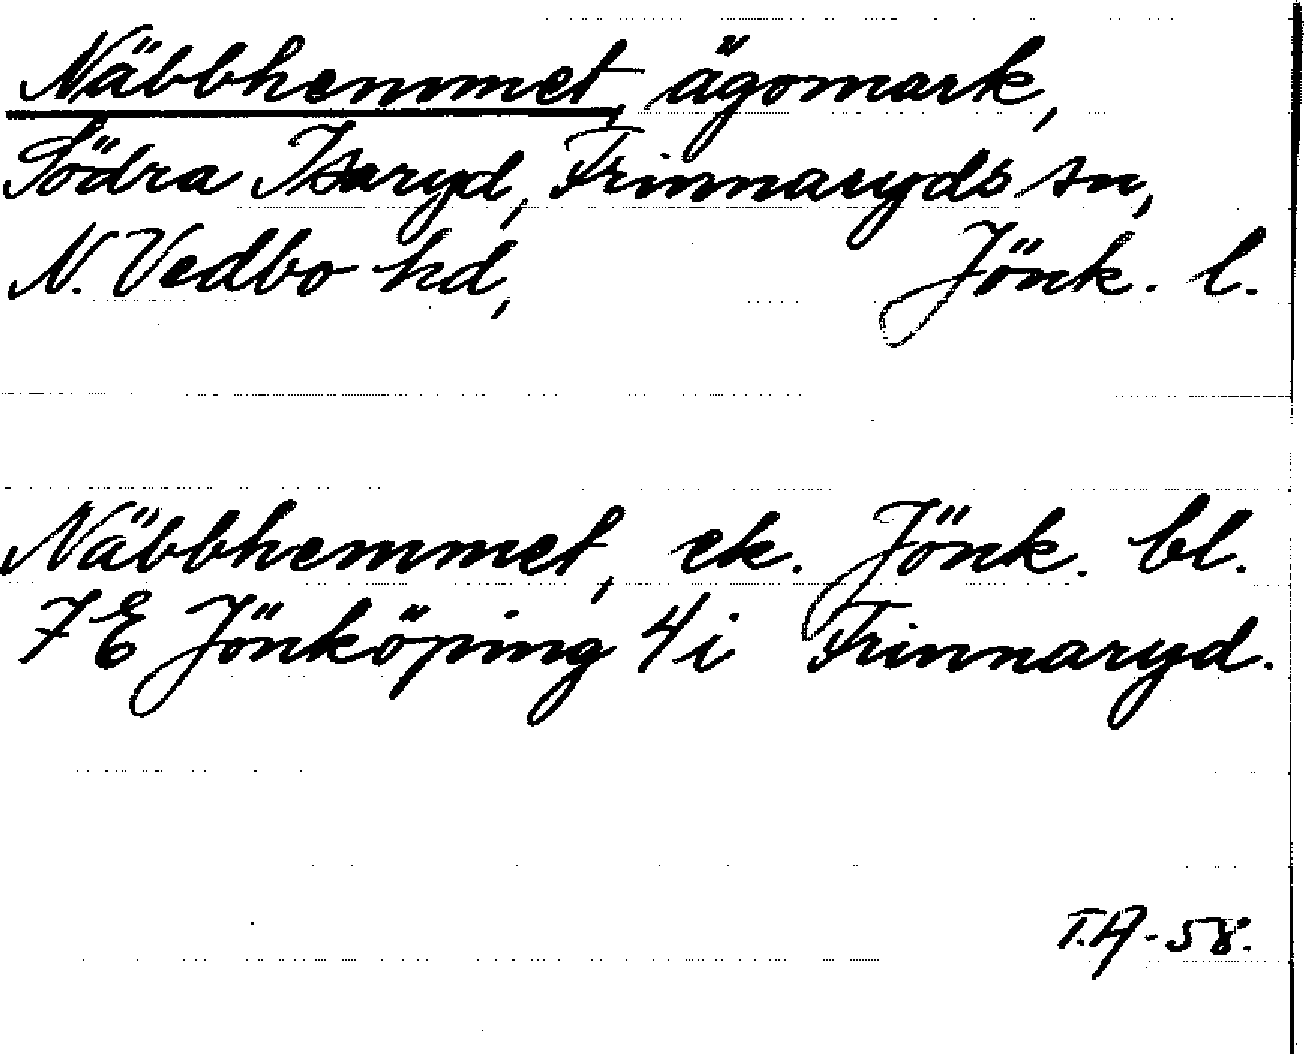 Näbbhemmet, ägomark,
Södra Isaryd, Frinnaryds sn,
N. Vedbo hd, Jönk. l.
Näbbhemmet, ek. Jönk. bl.
7E Jönköping 4i Frinnaryd.
T.A-58.